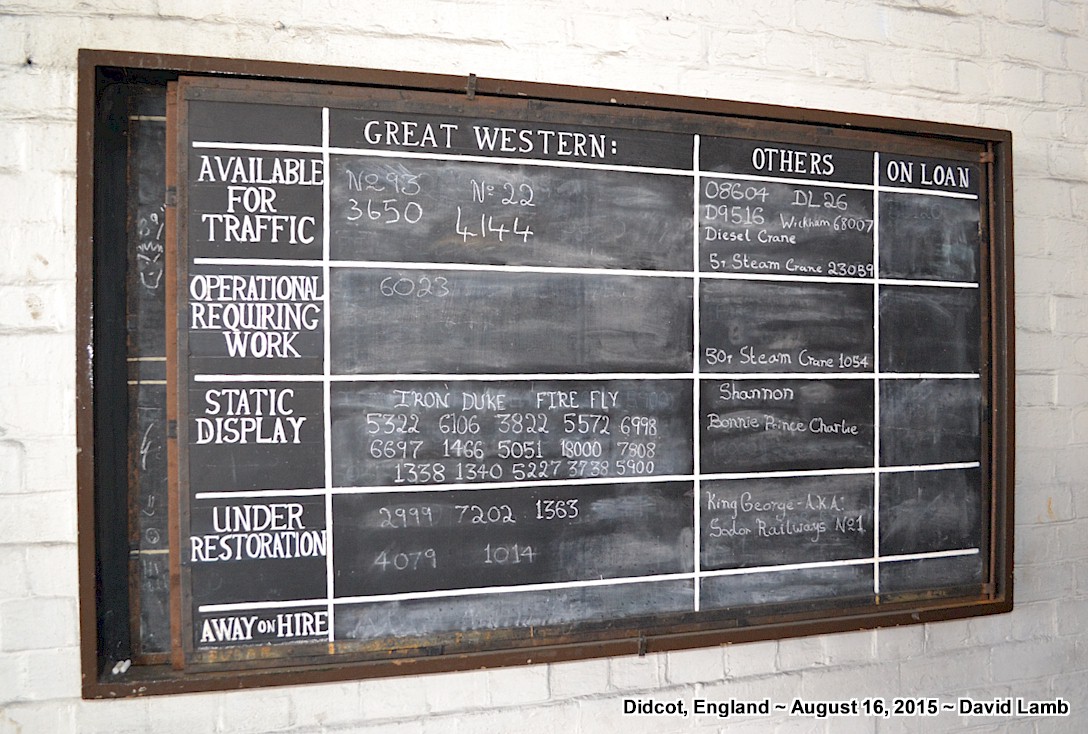 GREAT WESTERN:
OTHERS
ON LOAN
AVAILABLE
FOR
TRAFFIC
No 93 No 22
3650 4144
08604 DL26
D9516 Wickham 68007
Diesel Crane
5T Steam Crane 23059
OPERATIONAL
REQUIRING
WORK
6023
50T Steam Crane 1054
STATIC
DISPLAY
IRON DUKE FIRE FLY
5322 6106 3822 5572 6998
6697 1466 5051 18000 7808
1338 1340 5227 3738 5900
Shannon
Bonnie Prince Charlie
UNDER
RESTORATION
2999 7202 1363
4079 1014
King George - A.K.A:
Sodor Railways No1
AWAY ON HIRE
Didcot, England ~ August 16, 2015 ~ David Lamb